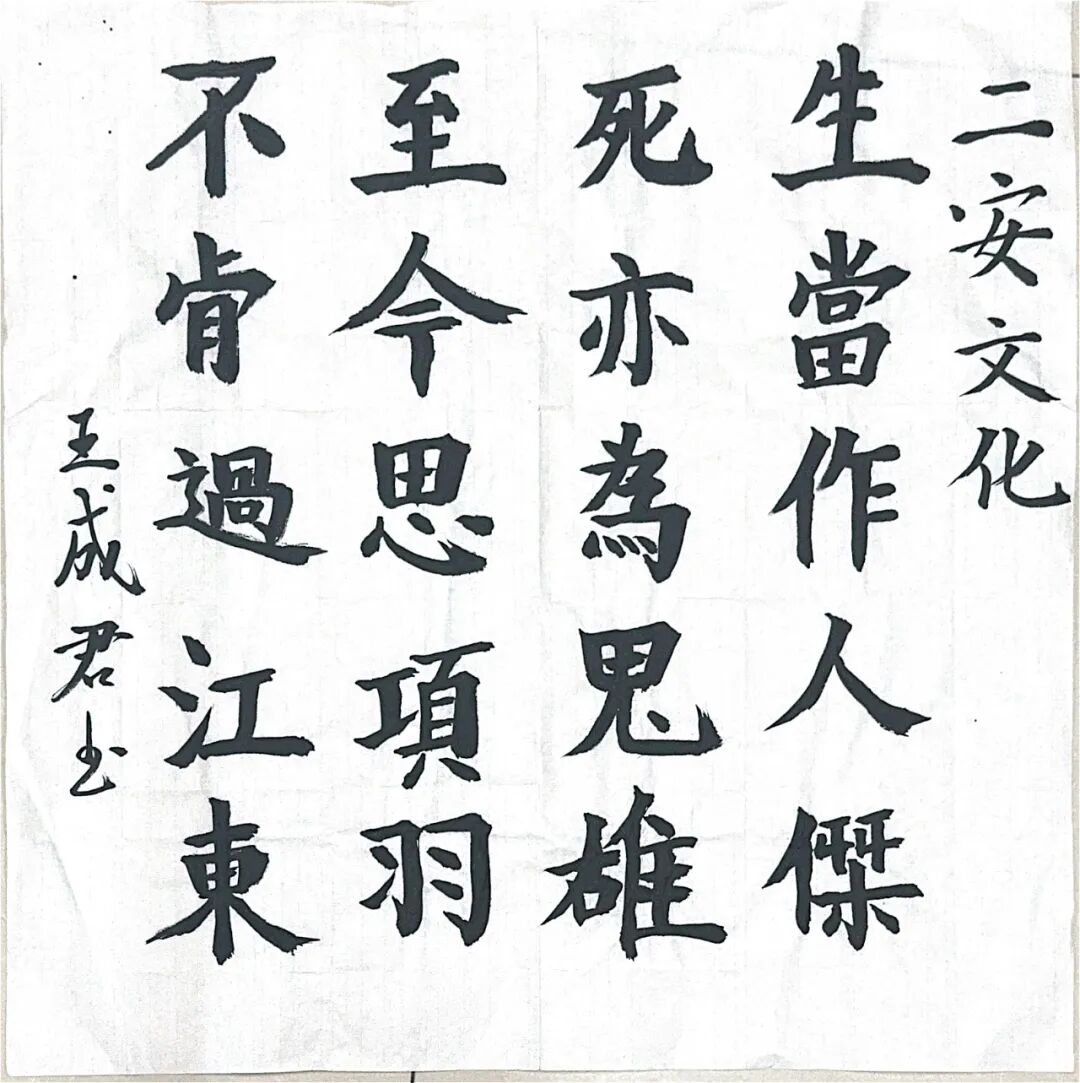 二安文化
生當作人傑
死亦為鬼雄
至今思項羽
不肯過江東
王成君书